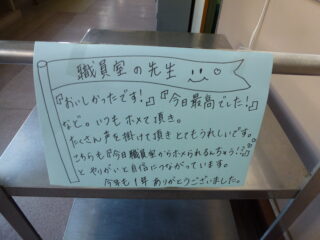 職員室の先生
『おいしかったです!』『今日最高でした!』
など。いつもホメて頂き。
たくさん声を掛けて頂きとてもうれしいです。
こちらも『今日職員室からホメられるんちゃう!?』
とやりがいと自信につながっています。
今年も1年ありがとうございました。